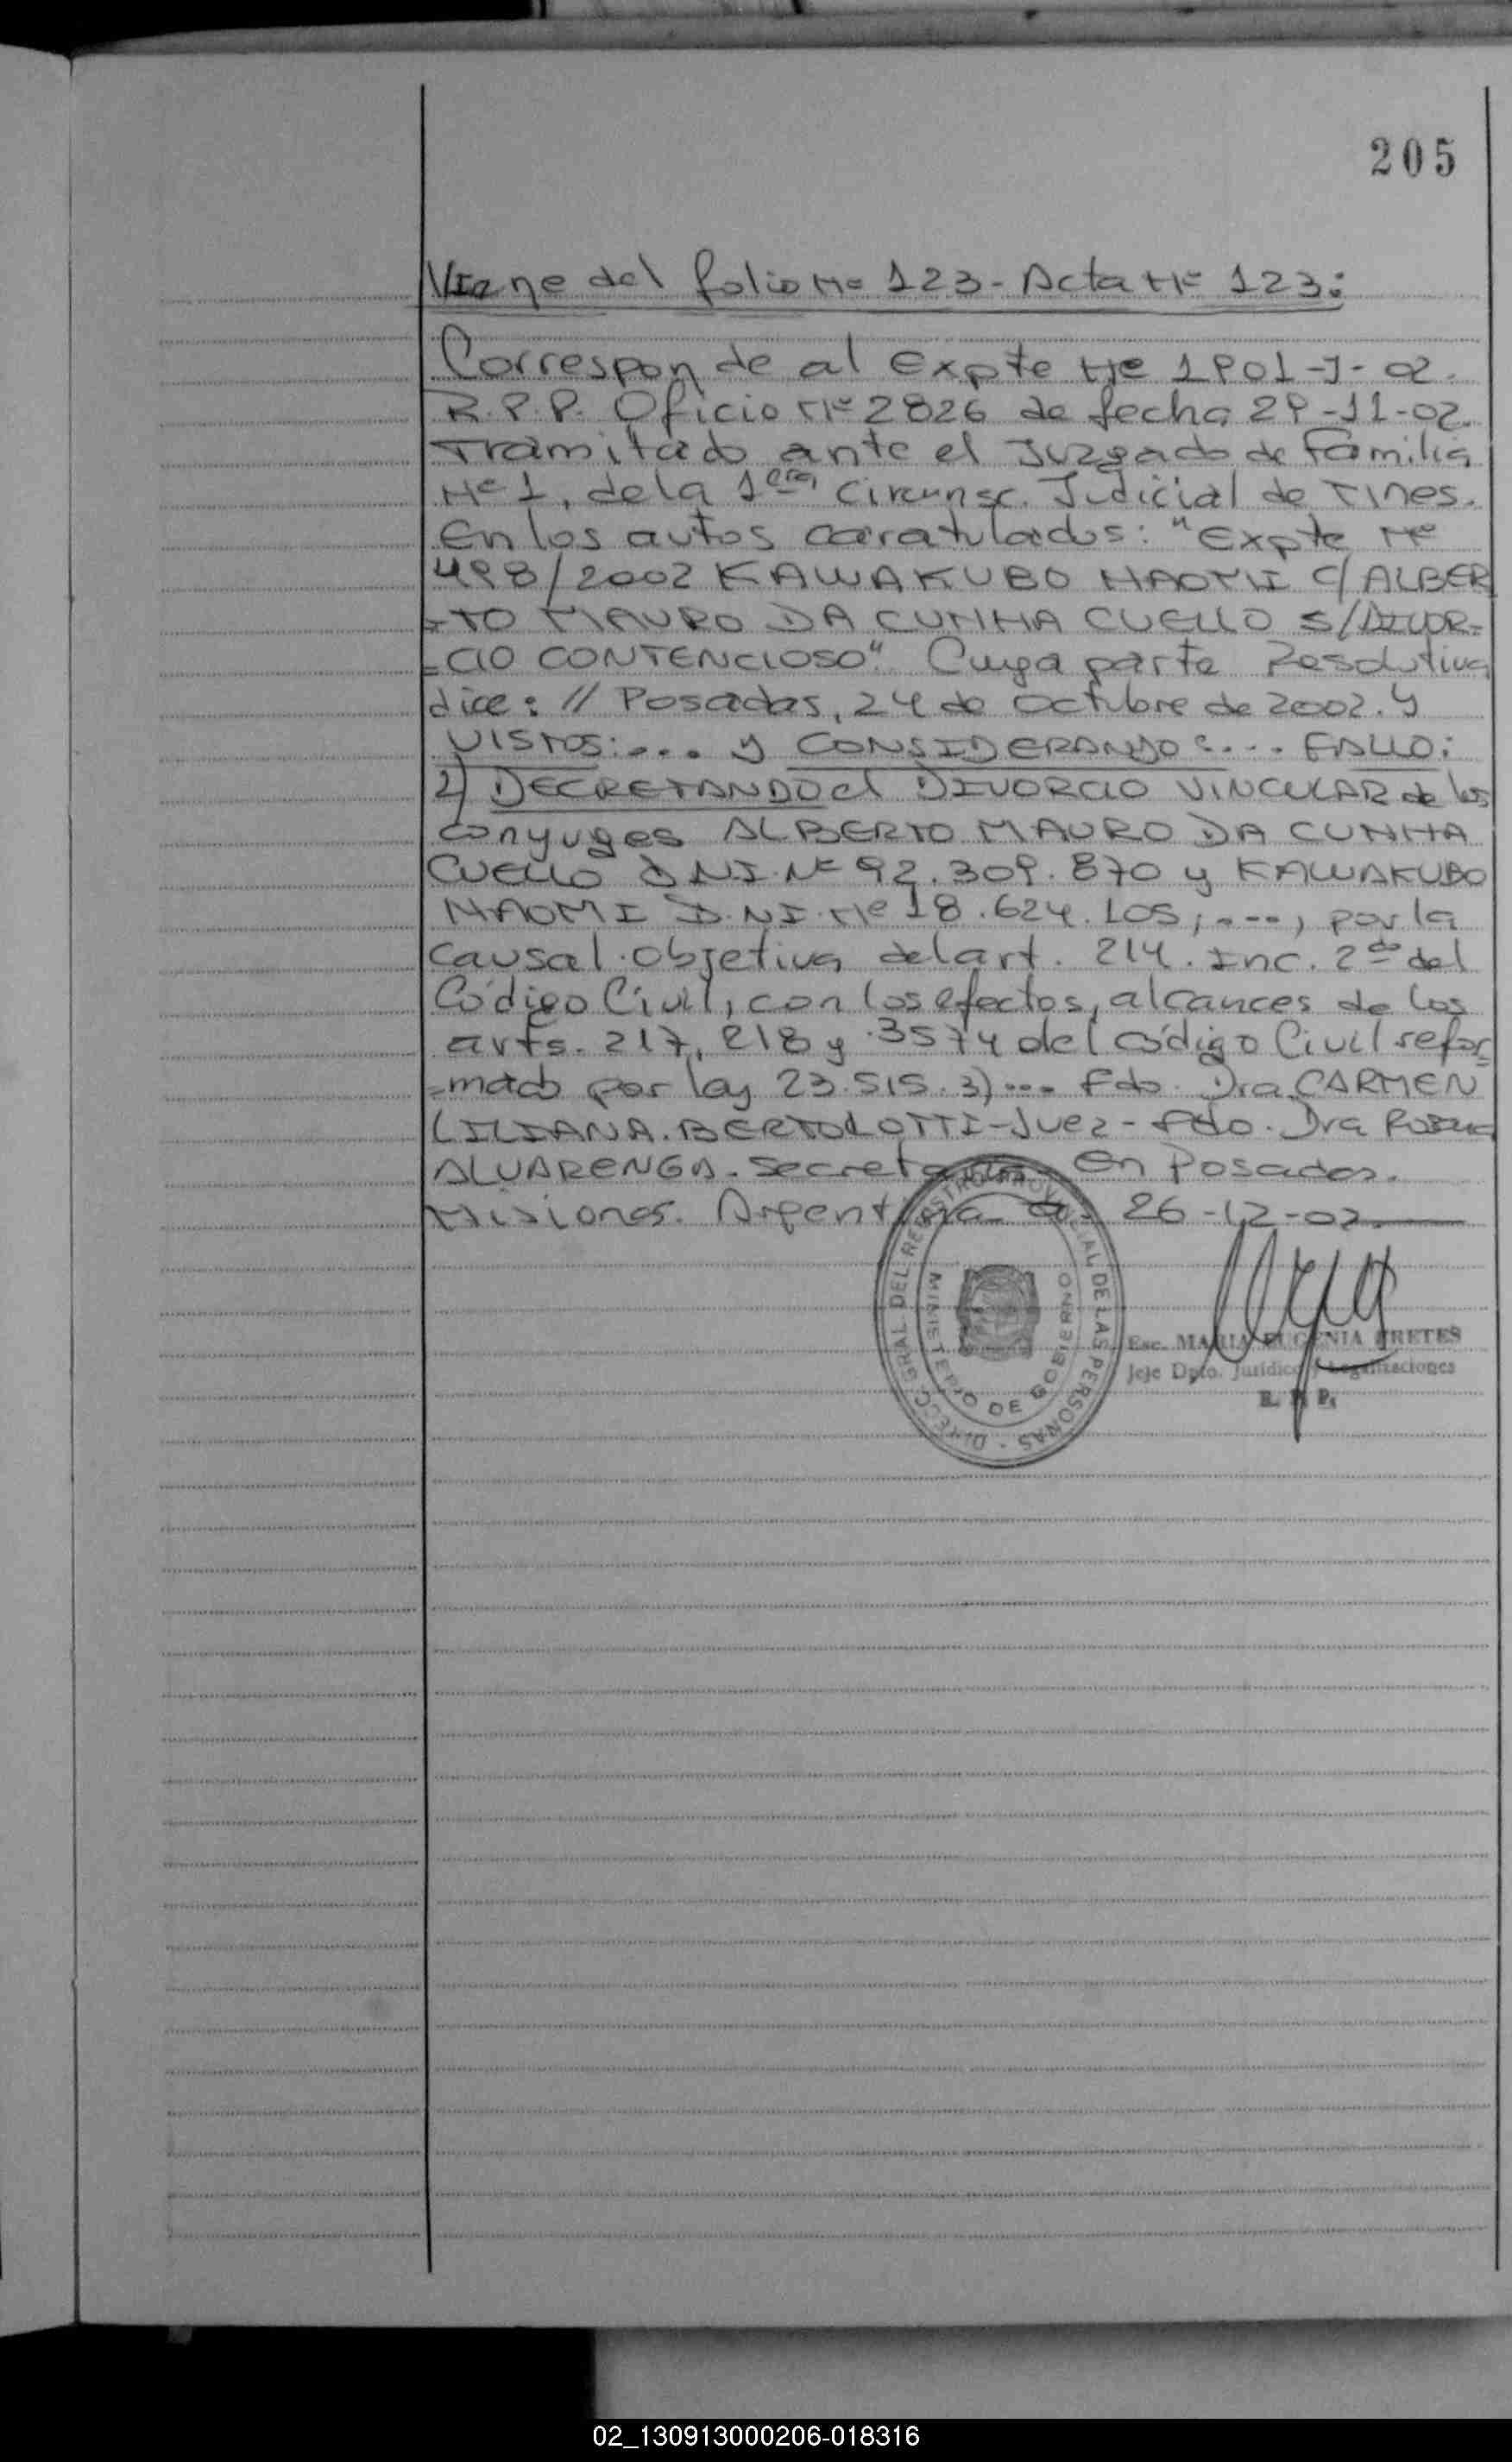 205
Viene del folio Nº 123 - Acta Nº 123:
Corresponde al Expte Nº 1901-J-02.
R.P.P. Oficio Nº 2826 de fecha 29-11-02.
Tramitado ante el Juzgado de Familia
Nº 1, de la 1era Circunsc. Judicial de Mnes.
En los autos caratulados: "Expte Nº
498/2002 KAWAKUBO NAOMI C/ ALBER
-TO MAURO DA CUNHA CUELLO S/DIVOR-
-CIO CONTENCIOSO". Cuya parte Resolutiva
dice: // Posadas, 24 de Octubre de 2002. Y
VISTOS:.... y CONSIDERANDO:.... FALLO:
2) DECRETANDO el DIVORCIO VINCULAR de los
conyuges ALBERTO MAURO DA CUNHA
CUELLO D.N.I. Nº 92.309.870 y KAWAKUBO
NAOMI D.N.I. Nº 18.624.105;...., por la
causal objetiva del art. 214. Inc. 2do del
Código Civil, con los efectos, alcances de los
arts. 217, 218 y 3574 del código Civil refor-
-mado por ley 23.515. 3).... Fdo. Dra CARMEN
LILIANA. BERTOLOTTI-Juez - Fdo. Dra
ALVARENGA. Secretaria. En Posadas.
Misiones. Argentina a 26-12-02.
DIRECC. GRAL DEL REGISTRO PROVINCIAL DE LAS PERSONAS
MINISTERIO DE GOBIERNO
Esc. MARIA EUGENIA
Jefe Dpto. Jurídico y Legalizaciones
R. P. P.
02_130913000206-018316